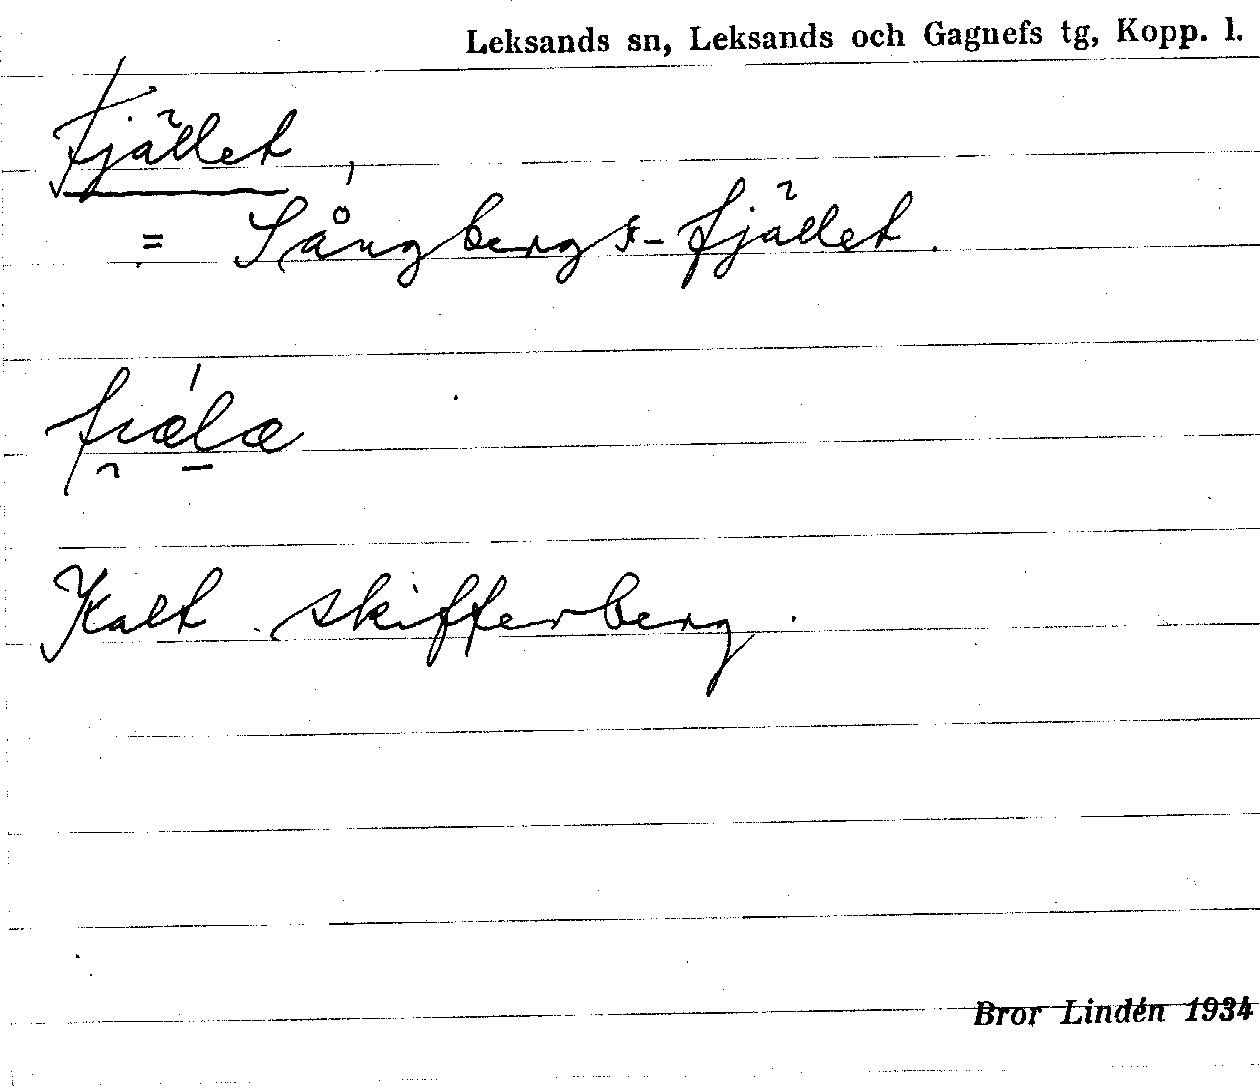 Leksands sn, Leksands och Gagnefs tg, Kopp. l.
Fjället,
= Sångbergs-fjället.
fi̯ǽ̠læ
Kalt skifferberg.
Bror Lindén 1934